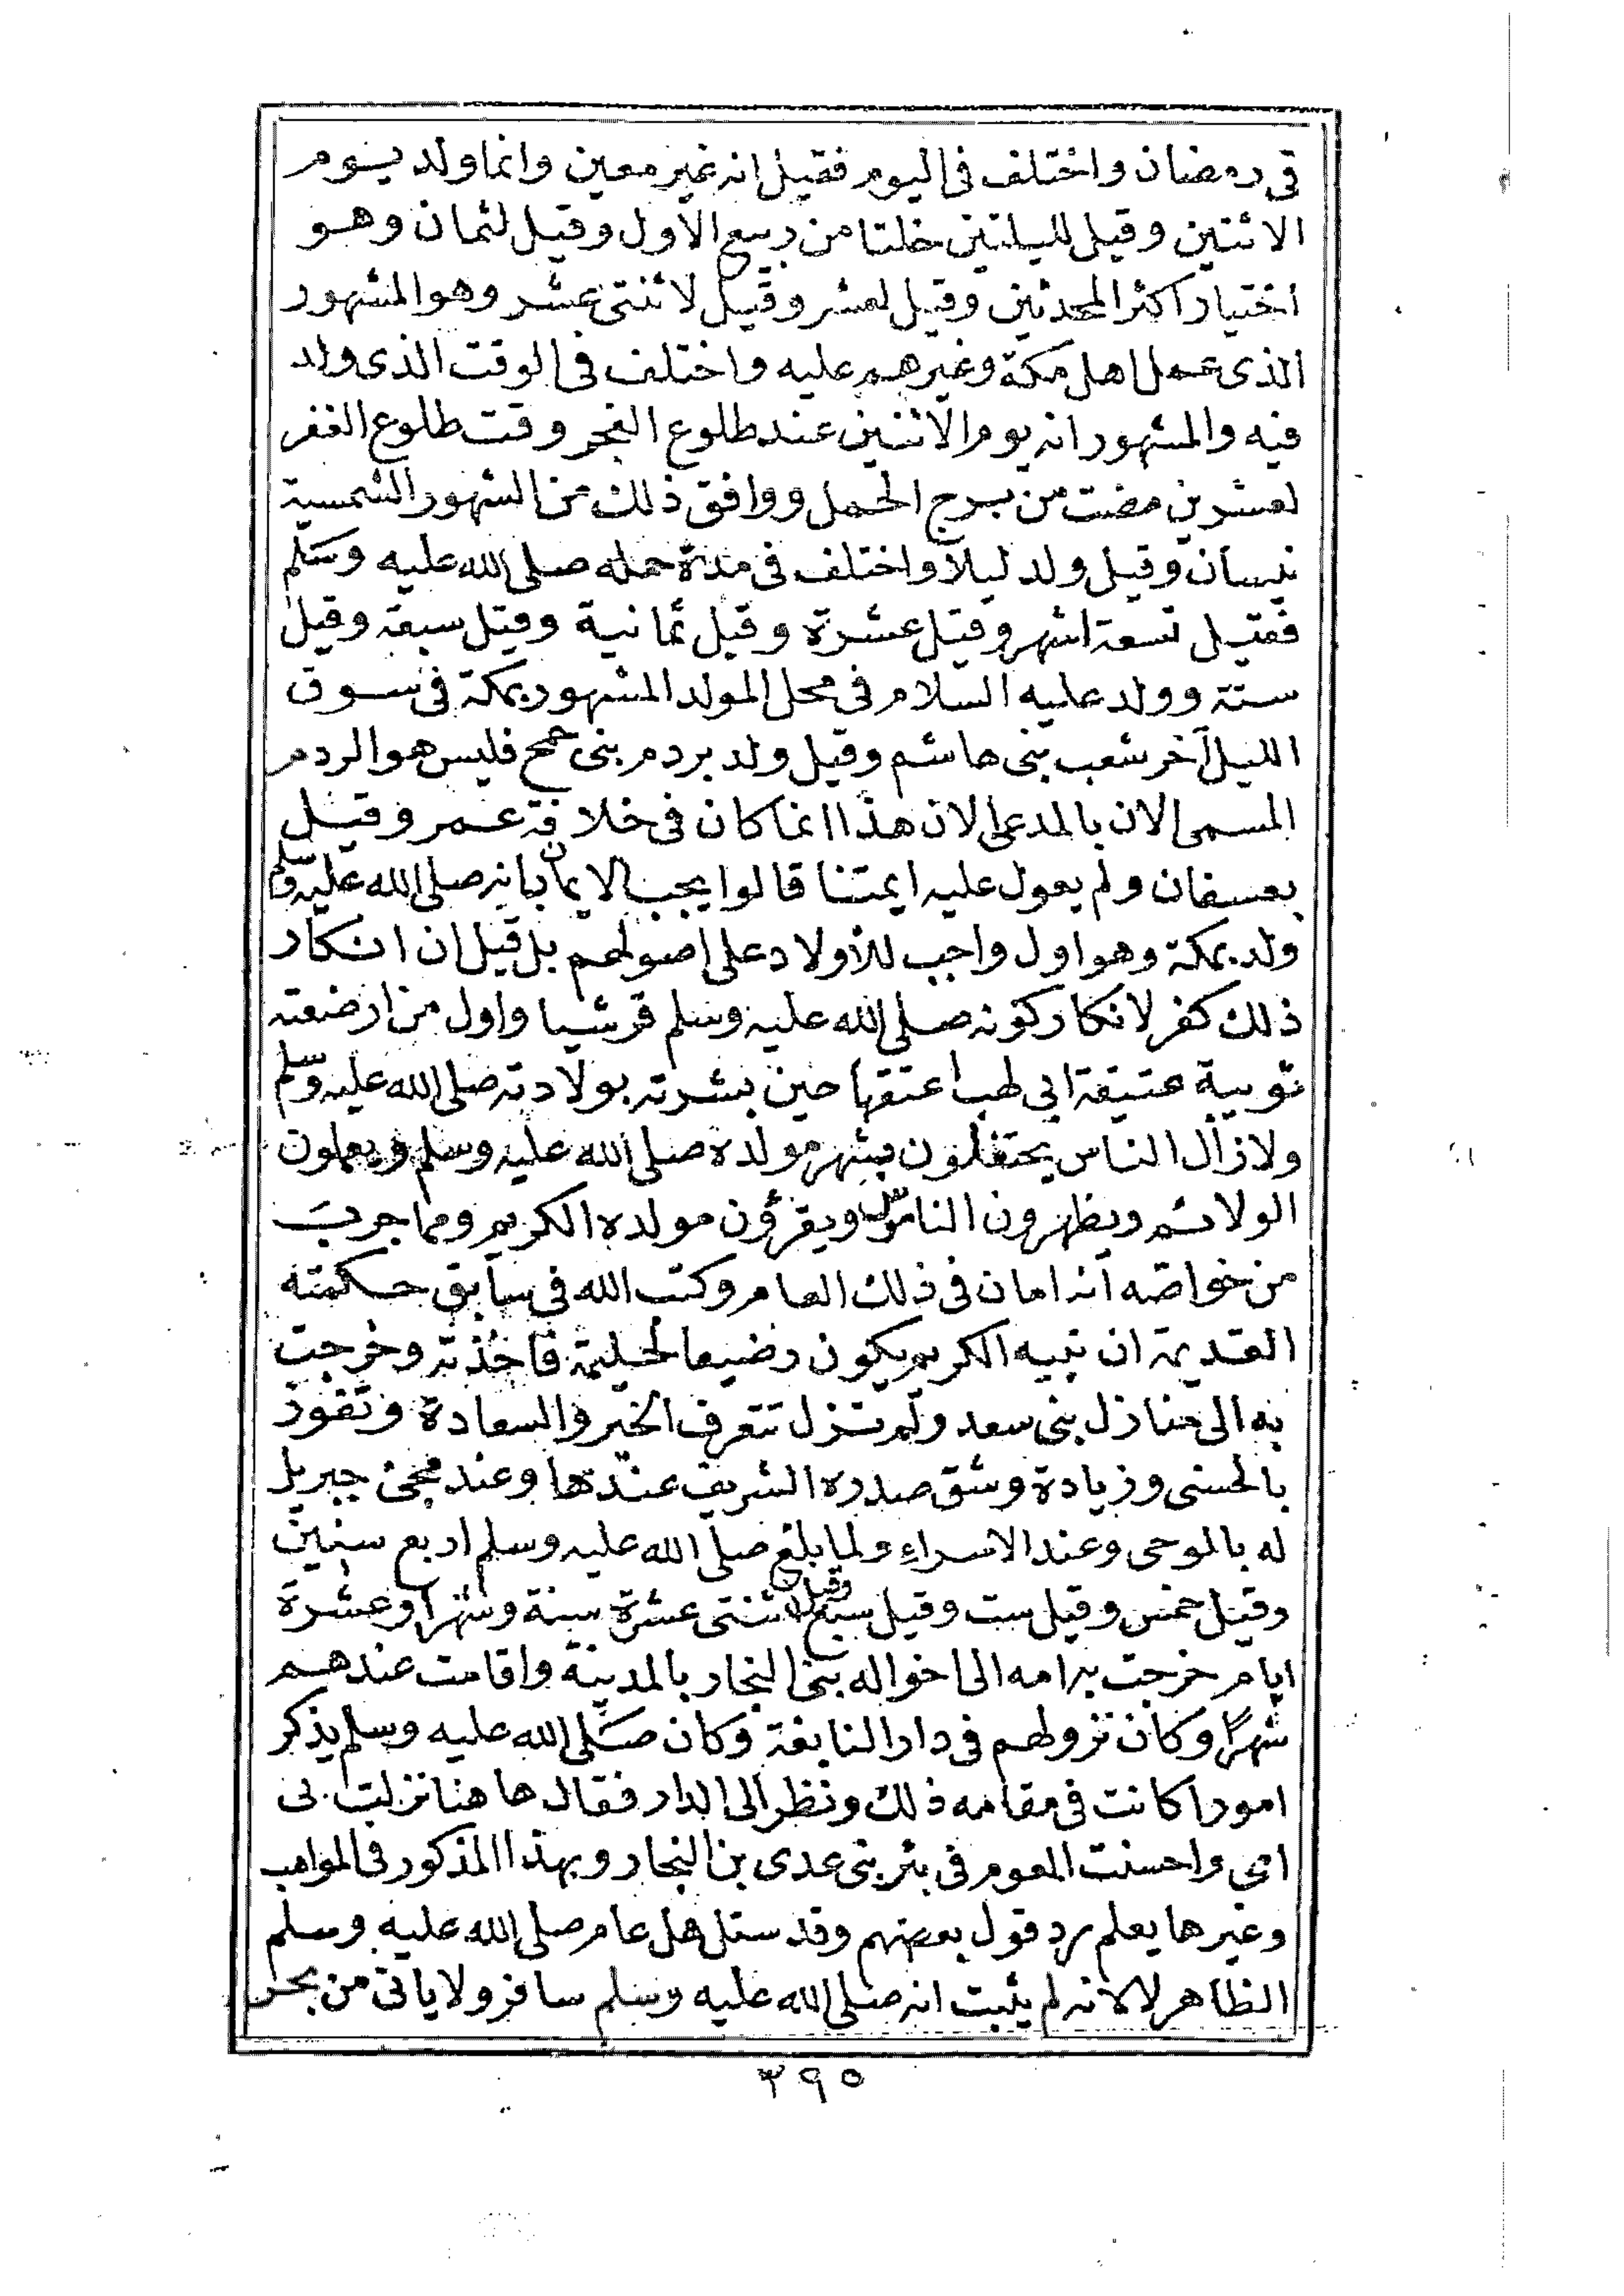 فى رمضان واختلف فى اليوم فقيل انه غير معين وانما ولد يوم
الاثنين وقيل لليلتين خلتا من ربيع الاول وقيل لثمان وهو
اختيار اكثر المحدثين وقيل لعشر وقيل لاثنتى عشر وهو المشهور
الذى عمل اهل مكة وغيرهم عليه واختلف فى الوقت الذى ولد
فيه والمشهور انه يوم الاثنين عند طلوع الفجر وقت طلوع الغفر
لعشرين مضت من برج الحمل ووافق ذلك من الشهور الشمسية
نيسان وقيل ولد ليلا واختلف فى مدة حمله صلى الله عليه وسلم
فقيل تسعة اشهر وقيل عشرة وقيل ثمانية وقيل سبعة وقيل
ستة وولد عليه السلام فى محل المولد المشهور بمكة فى سوق
الليل آخر شعب بنى هاشم وقيل ولد بردم بنى جمح فليس هو الردم
المسمى الان بالمدعى لان هذا انما كان فى خلافة عمر وقيل
بعسفان ولم يعول عليه ايمتنا قالوا يجب الايمان بانه صلى الله عليه وسلم
ولد بمكة وهو اول واجب للأولاد على اصولهم بل قيل ان انكار
ذلك كفر لانكار كونه صلى الله عليه وسلم قرشيا واول من ارضعته
ثويبة عتيقة ابي لهب اعتقها حين بشرته بولادته صلى الله عليه وسلم
ولا زال الناس يحتفلون بشهر مولده صلى الله عليه وسلم ويعملون
الولائم ويظهرون الناموس ويقرؤن مولده الكريم ومما جرب
من خواصه انه امان فى ذلك العام وكتب الله فى سابق حكمته
القديمة ان نبيه الكريم يكون رضيعا لحليمة فاخذته وخرجت
به الى منازل بنى سعد ولم تزل تتعرف الخير والسعادة وتفوز
بالحسنى وزيادة وشق صدره الشريف عندها وعند مجئ جبريل
له بالوحى وعند الاسراء ولما بلغ صلى الله عليه وسلم اربع سنين
وقيل خمس وقيل ست وقيل سبع وقيل اثنتى عشرة سنة وشهرا وعشرة
ايام خرجت به امه الى اخواله بنى النجار بالمدينة واقامت عندهم
شهرا وكان نزولهم فى دار النابغة وكان صلى الله عليه وسلم يذكر
امورا كانت فى مقامه ذلك ونظر الى الدار فقال ها هنا نزلت بى
امى واحسنت العوم فى بئر بنى عدى بن النجار وبهذا المذكور فى المواهب
وغيرها يعلم رد قول بعضهم وقد سئل هل عام صلى الله عليه وسلم
الظاهر لا لانه لم يثبت انه صلى الله عليه وسلم سافر ولا ياتى من بحر
٣٩٥